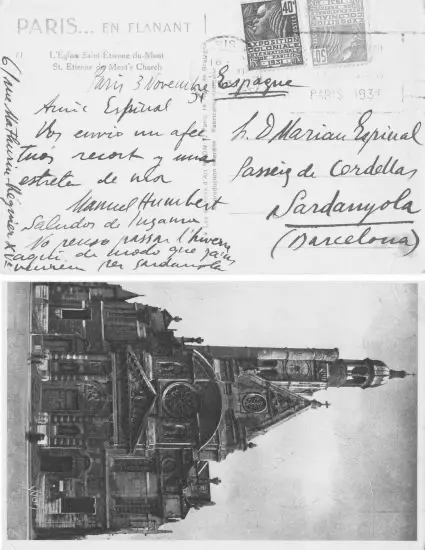 PARIS... EN FLANANT
L'Eglise Saint Etienne-du-Mont
St. Etienne du Mont's Church
Paris 3 Novembre 31
Amic Espinal
Vos envio un afec
tuós record y una
estreta de
Manuel Humbert
Saludos de Suzanne
No penso passar l'hivern
aquí de modo que ja us
veurem per Sardanyola
6/rue Mathurin-Régnier XVe
Espagne
PARIS 1931
Sr. D Marian Espinal
Passeig de Cordelles
Sardanyola
(Barcelona)
40c
EXPOSITION
COLONIALE
YVON